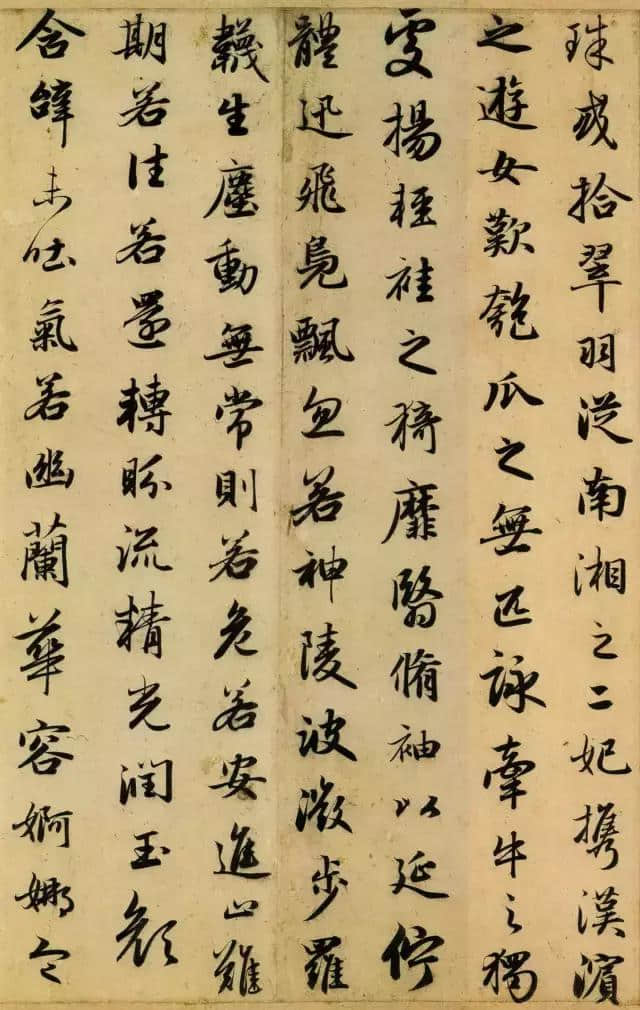 珠或拾翠羽從南湘之二妃攜漢濱
之遊女歎匏瓜之無匹詠牽牛之獨
處揚輕袿之猗靡翳脩袖以延佇
體迅飛鳧飄忽若神陵波微步羅
韈生塵動無常則若危若安進止難
期若往若還轉眄流精光潤玉顏
含辭未吐氣若幽蘭華容婀娜令